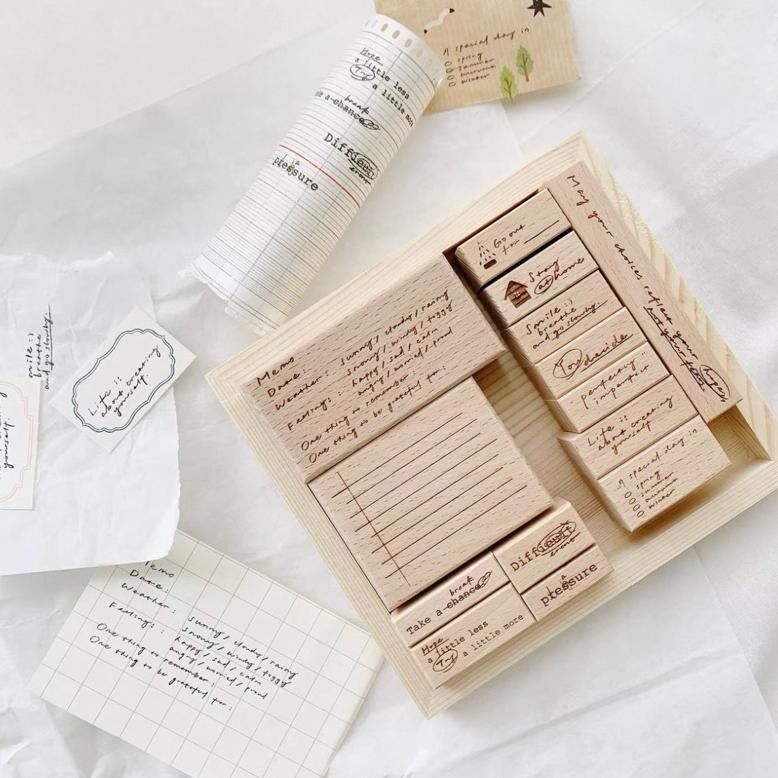 Hope
a little less
Try a little mo
ke a chance
break
Difficult
erent
pleasure
A special day in
spring
summer
autumn
winter
smile :)
breathe
and go slowly
Life is
about creating
yourself
yourself.
Memo
Date:
Weather: sunny / cloudy / rainy
snowy / windy / foggy
Feelings: happy / sad / calm
angry / worried / proud
One thing to remember:
One thing to be grateful for:
Memo
Date:
Weather: sunny / cloudy / rainy
snowy / windy / foggy
Feelings: happy / sad / calm
angry / worried / proud
One thing to remember:
One thing to be grateful for:
Go out
for
Stay
at home
Smile :)
breathe
and go slowly
You decide
perfectly
imperfect
Life is
about creating
yourself
A special day in
spring
summer
autumn
winter
May your choices reflect your
hopes
Take a chance
break
Difficult
erent
pleasure
Hope
a little less
Try a little more